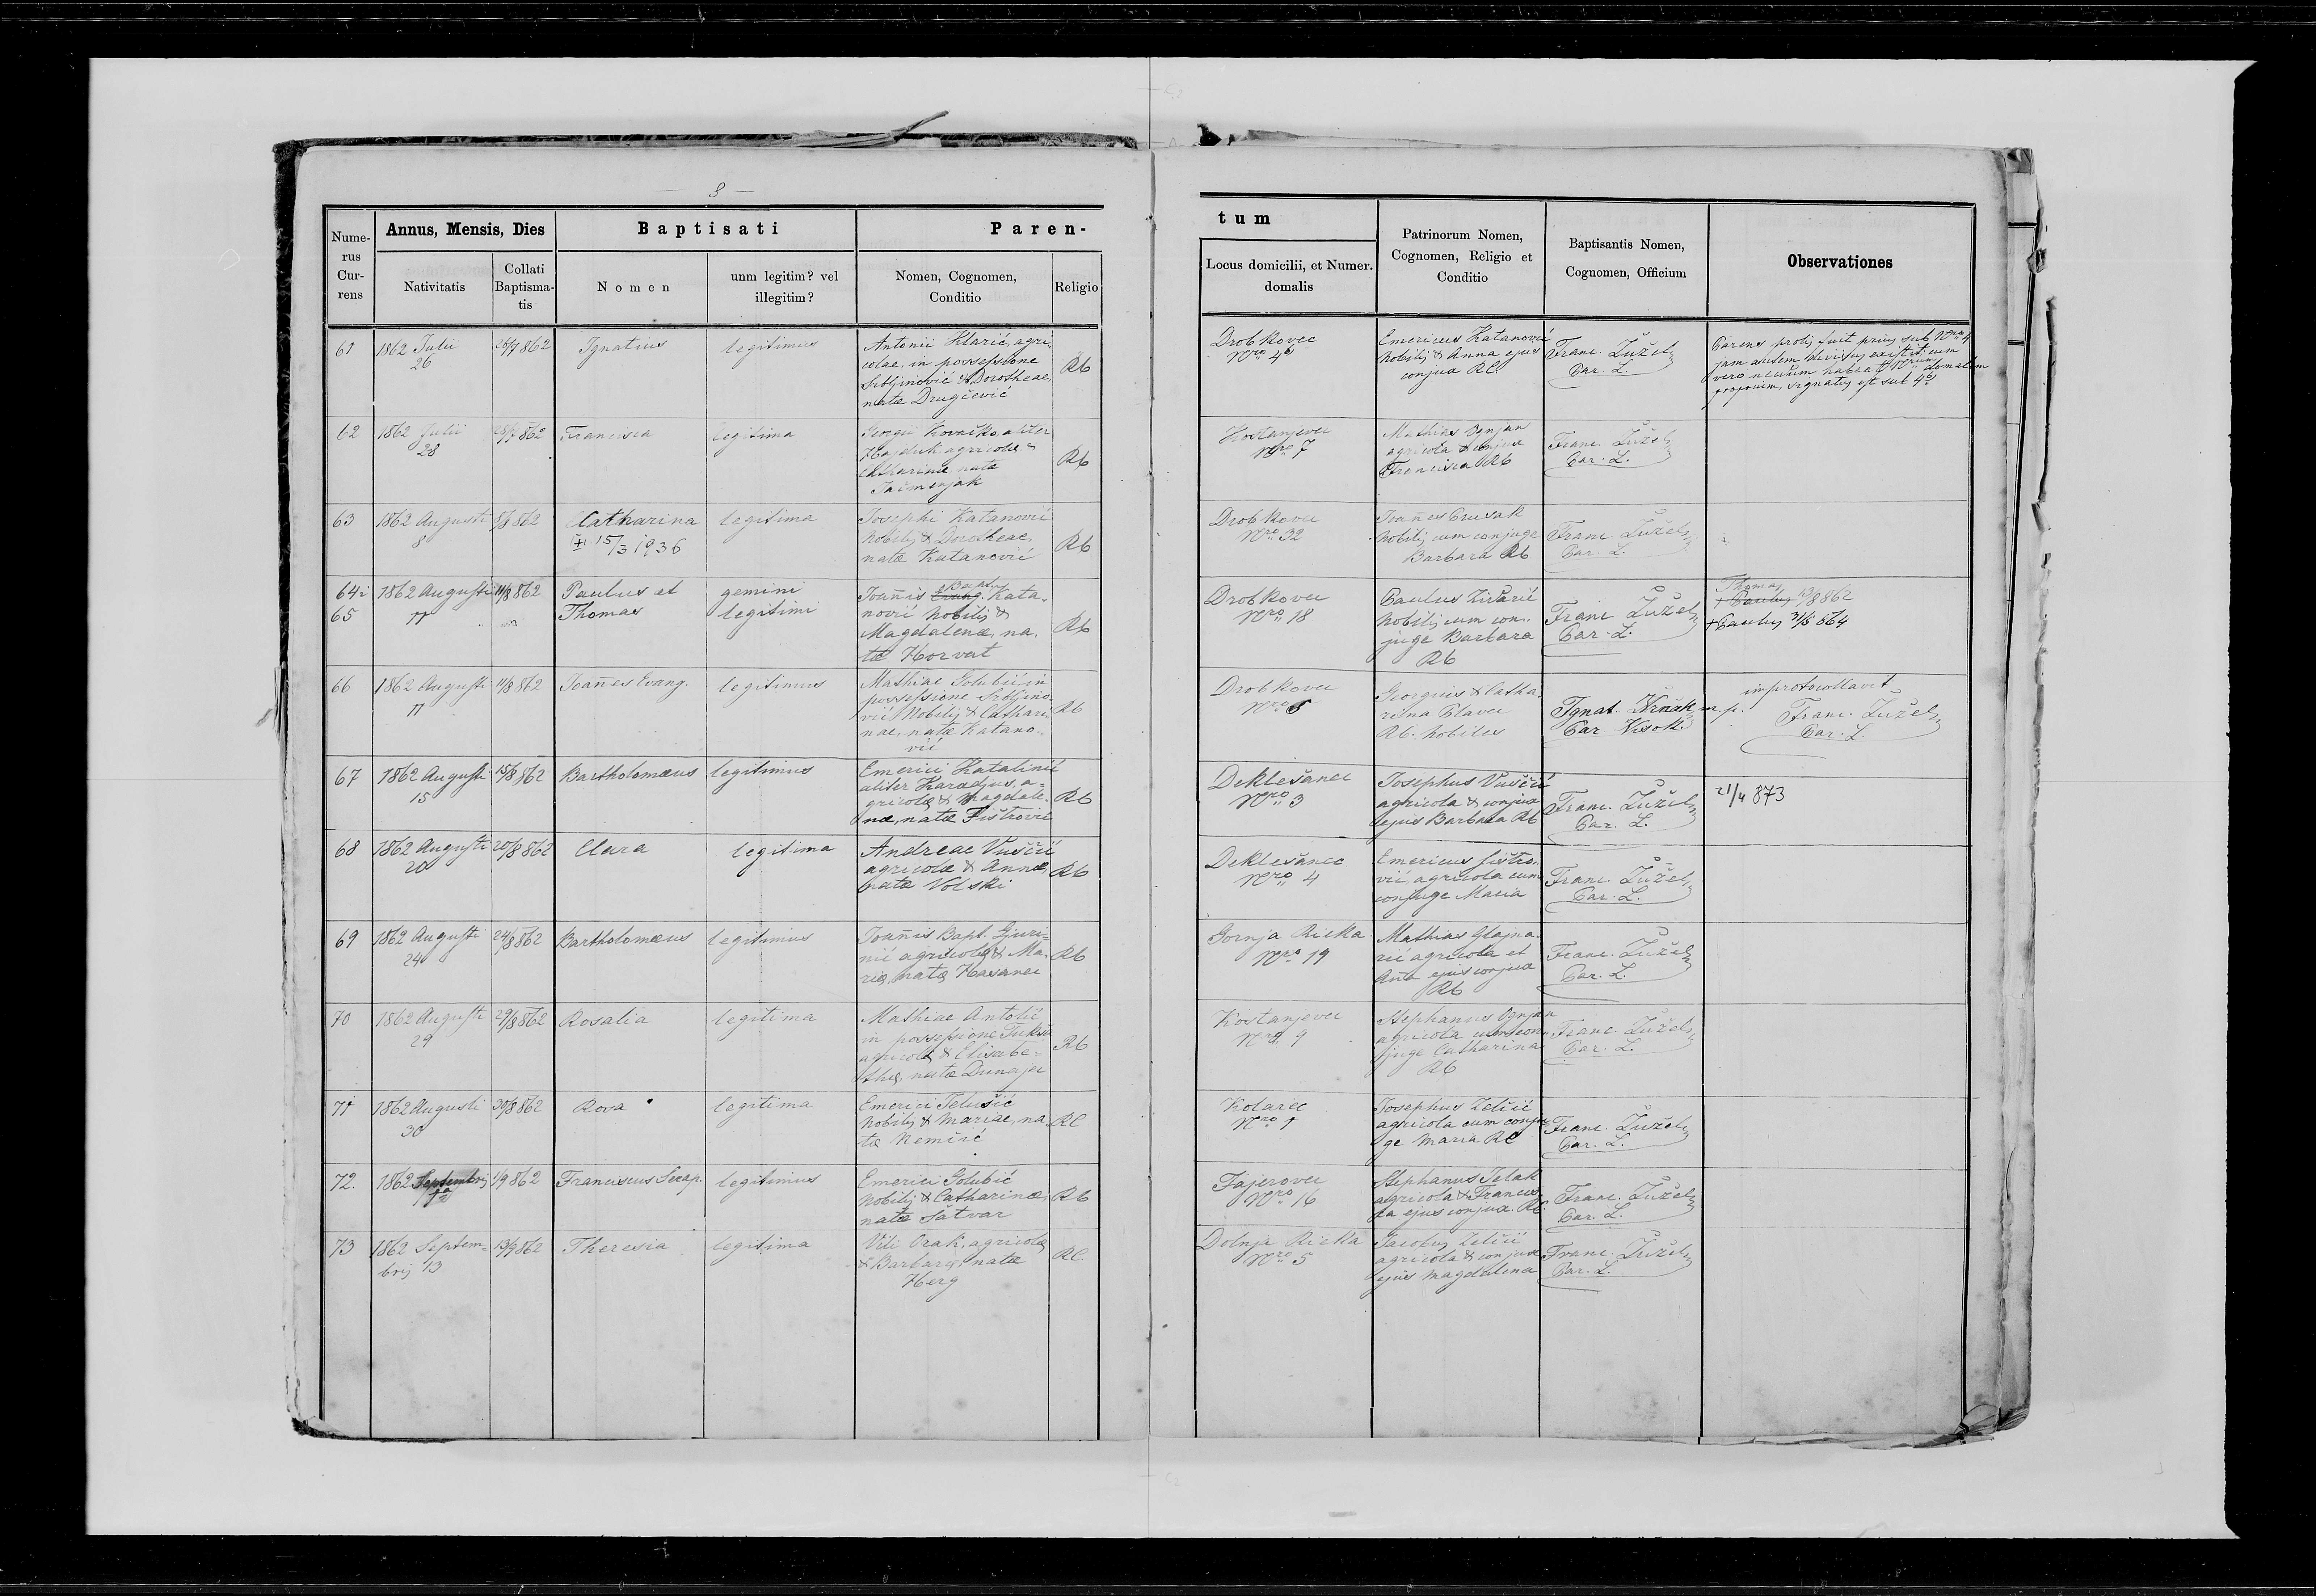 8
Nume-
rus
Cur-
rens
Annus, Mensis, Dies
Nativitatis
Collati
Baptisma-
tis
Baptisati
Nomen
unm legitim? vel
illegitim?
Paren-
Nomen, Cognomen,
Conditio
Religio
tum
Locus domicilii, et Numer.
domalis
Patrinorum Nomen,
Cognomen, Religio et
Conditio
Baptisantis Nomen,
Cognomen, Officium
Observationes
61
1862 Julii
26
26/7 862
Ignatius
legitimus
Antonii Klarić, agri-
colae, in possessione
& Dorotheae,
natæ Drugčević
RC
Drobkovec
Nro 4
Emericus Katanović
Nobilis & Anna ejus
conjux RC
Franc. Žužel
Par. L.
Parens prolis fuit prius sub Nro 4
jam autem divisus existit cum
vero necdum habeat Nrum domalem
proprium, signatus est sub 4
62
1862 Julii
28
28/7 862
Francisca
legitima
Georgii Kovačko, aliter
Hajduk agricolæ &
Catharinæ natæ
Jačmenjak
RC
Kostanjevec
Nro 7
Mathias Ognjan
agricola & conjux
Francisca RC
Franc. Žužel
Par. L.
63
1862 Augusti
8
8/8 862
Catharina
+ 15/3 1936
legitima
Josephi Katanović
Nobilis & Dorotheae,
natæ Katanović
RC
Drobkovec
Nro 32
Joañes Crusak
Nobilis cum conjuge
Barbara RC
Franc. Žužel
Par. L.
64 i
65
1862 Augusti
11
11/8 862
Paulus et
Thomas
gemini
legitimi
Joañis Evang. Kata-
nović Nobilis &
Magdalenæ, na-
tæ Horvat
RC
Drobkovec
Nro 18
Paulus
Nobilis cum con-
juge Barbara
RC
Franc. Žužel
Par. L.
Thomas
+ Paulus /8 862
+ Paulus 31/5 864
66
1862 Augusti
11
11/8 862
Joañes Evang.
legitimus
Mathiae Golubić in
possessione
Nobilis & Cathari-
nae, natæ Katano-
vić
RC
Drobkovec
Nro 6
Georgius & Catha-
rina Plavec
RC. Nobiles
Ignat. m. p.
Par.
improtocollavit
Franc. Žužel
Par. L.
67
1862 Augusti
15
15/8 862
Bartholomæus
legitimus
Emerici Katalinić
aliter Karadjus, a-
gricolæ & Magdale-
næ, natæ Fištrović
RC
Deklešanec
Nro 3
Josephus Vuščić
agricola & conjux
ejus Barbara RC
Franc. Žužel
Par. L.
21/4 873
68
1862 Augusti
20
20/8 862
Clara
legitima
Andreae Vuščić
agricolæ & Annæ,
natæ Volski
RC
Deklešanec
Nro 4
Emericus Fištro-
vić, agricola cum
conjuge Maria
Franc. Žužel
Par. L.
69
1862 Augusti
24
24/8 862
Bartholomæus
legitimus
Joañis Bapt. Gjuri-
nić agricolæ & Ma-
riæ, natæ Hasanec
RC
Gornja Rieka
Nro 19
Mathias Glajna-
rić agricola et
Aña ejus conjux
RC
Franc. Žužel
Par. L.
70
1862 Augusti
29
29/8 862
Rosalia
legitima
Mathiae Antolić
in possessione
agricolæ & Elisabe-
thæ, natæ Dunajec
RC
Kostanjevec
Nro 9
Stephanus Ognjan
agricola cum con-
juge Catharina
RC
Franc. Žužel
Par. L.
71
1862 Augusti
30
30/8 862
Rosa
legitima
Emerici Telušić
Nobilis & Mariae, na-
tæ Nemčić
RC
Kolarec
Nro 1
Josephus Zelčić
agricola cum conju-
ge Maria RC
Franc. Žužel
Par. L.
72.
1862 Septembris
1a
1/9 862
Franciscus Serap.
legitimus
Emerici Golubić
Nobilis & Catharinæ,
natæ Šatvar
RC
Fajerovec
Nro 16
Stephanus Jelak
agricola & Francis-
ca ejus conjux. RC.
Franc. Žužel
Par. L.
73
1862 Septem-
bris 13
13/9 862
Theresia
legitima
Viti Orak, agricolæ
& Barbaræ, natæ
Herg
RC.
Dolnja Rieka
Nro 5
Jacobus Zelčić
agricola & conjux
ejus Magdalena
Franc. Žužel
Par. L.